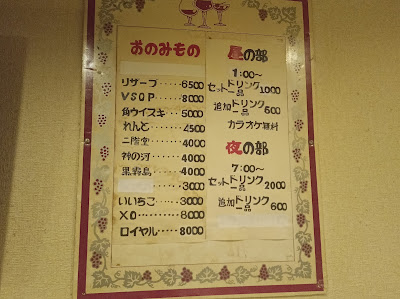 おのみもの
リザーブ・・・・・6500
VSOP・・・・・・8000
角ウイスキ・・・5000
れんと・・・・・・4500
二階堂・・・・・・4000
神の河・・・・・・4000
黒霧島・・・・・・4000
・・・・・3000
いいちこ・・・・3000
XO・・・・・・・・・8000
ロイヤル・・・・・8000
昼の部
1:00〜
セットドリンク一品1000
追加ドリンク一品600
カラオケ無料
夜の部
7:00〜
セットドリンク一品2000
追加ドリンク一品600